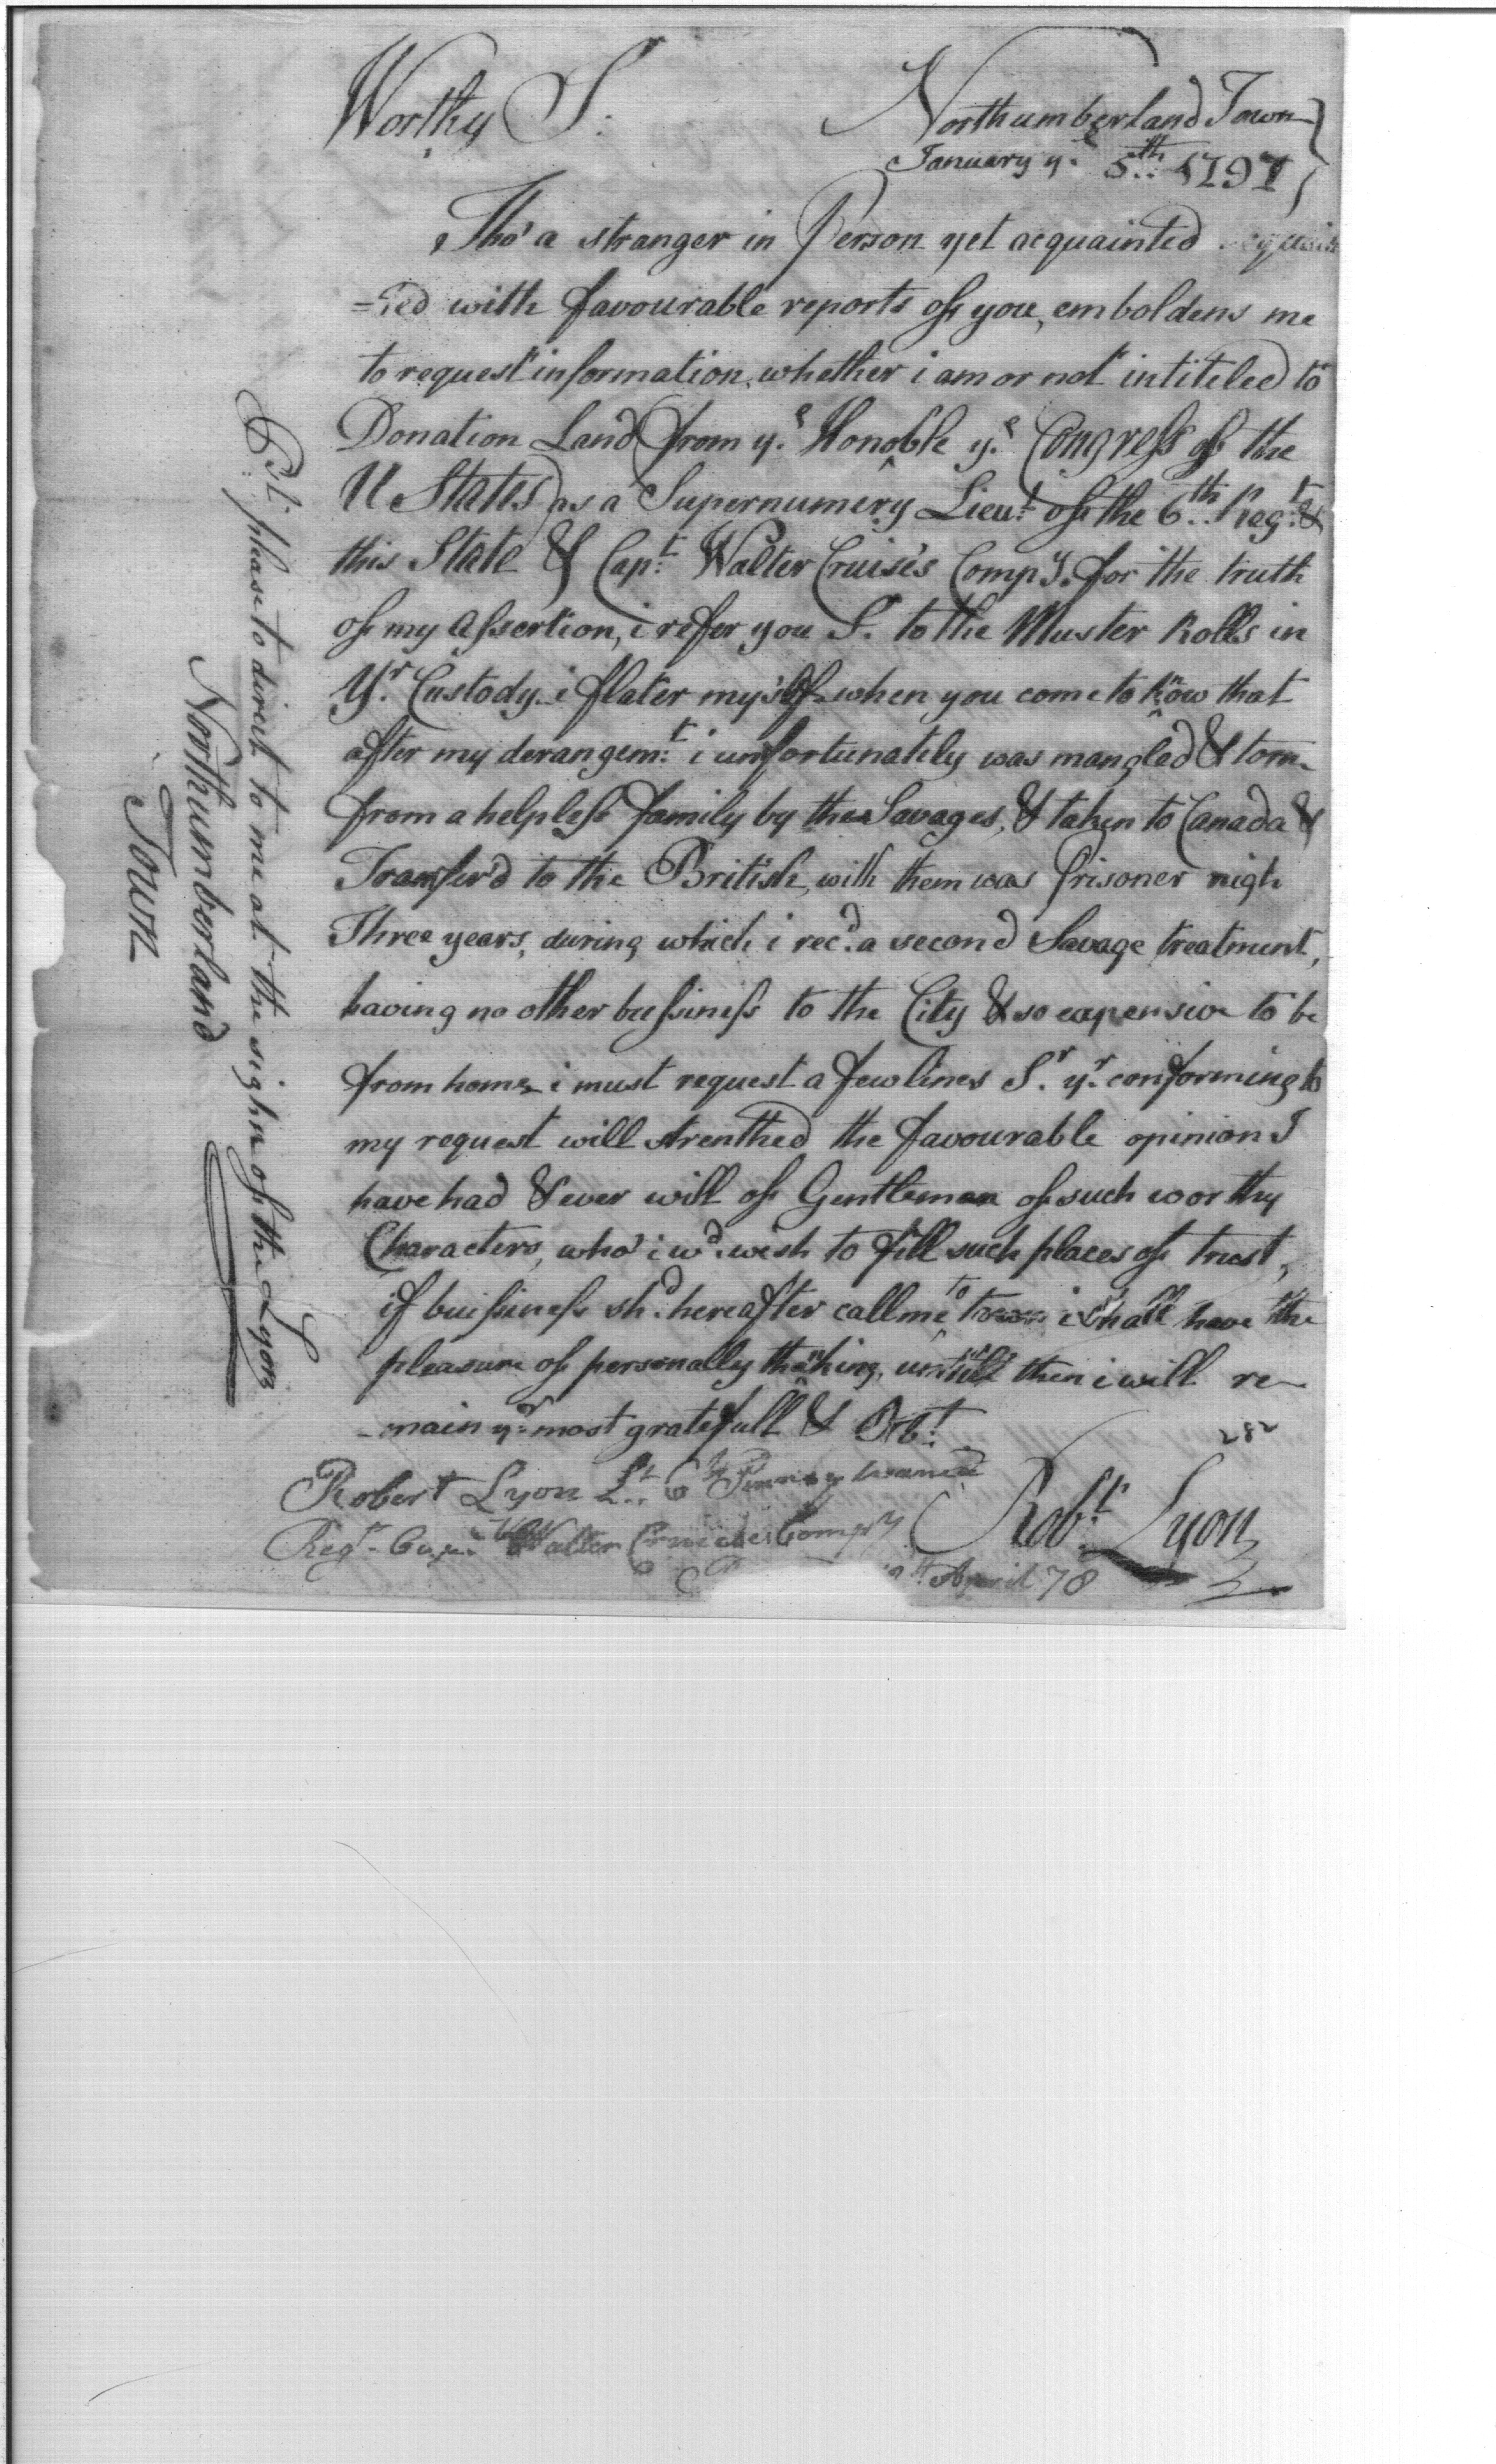 Worthy S:
Northumberland Town
January ye 5th 1797
Tho' a stranger in Person yet acquainted
=ted with favourable reports of you, emboldens me
to request information, whether i am or not intiteled to
Donation Land (from ye Honoble ye Congress of the
U States) as a Supernumery Lieut of the 6th Regt &
this State & Capt Walter Cruise's Compy. for the truth
of my assertion, i refer you S. to the Muster Rolls in
Yr. Custody. i flater myself when you come to know that
after my derangemt i unfortunately was mangled & torn
from a helpless family by the Savages, & taken to Canada &
Transfer'd to the British, with them was Prisoner nigh
Three years, during which i recd. a second Savage treatment,
having no other bussiness to the City & so expensive to be
from home, i must request a few lines Sr. yr. conforming to
my request will strenthed the favourable opinion I
have had & ever will of Gentlemen of such worthy
Characters, who' i wd. wish to fill such places of trust,
if buissiness shd. hereafter call me to town i shall have the
pleasure of personally thanking, until then i will re
-main yr. most gratefull & Obt.
282
Robt. Lyon
Robert Lyon Lt. 6th Pennsylvania
Regt. Capt. Walter Cruise's Compy
April 78
please to direct to me at the sighn of the Lyon
Northumberland
Town